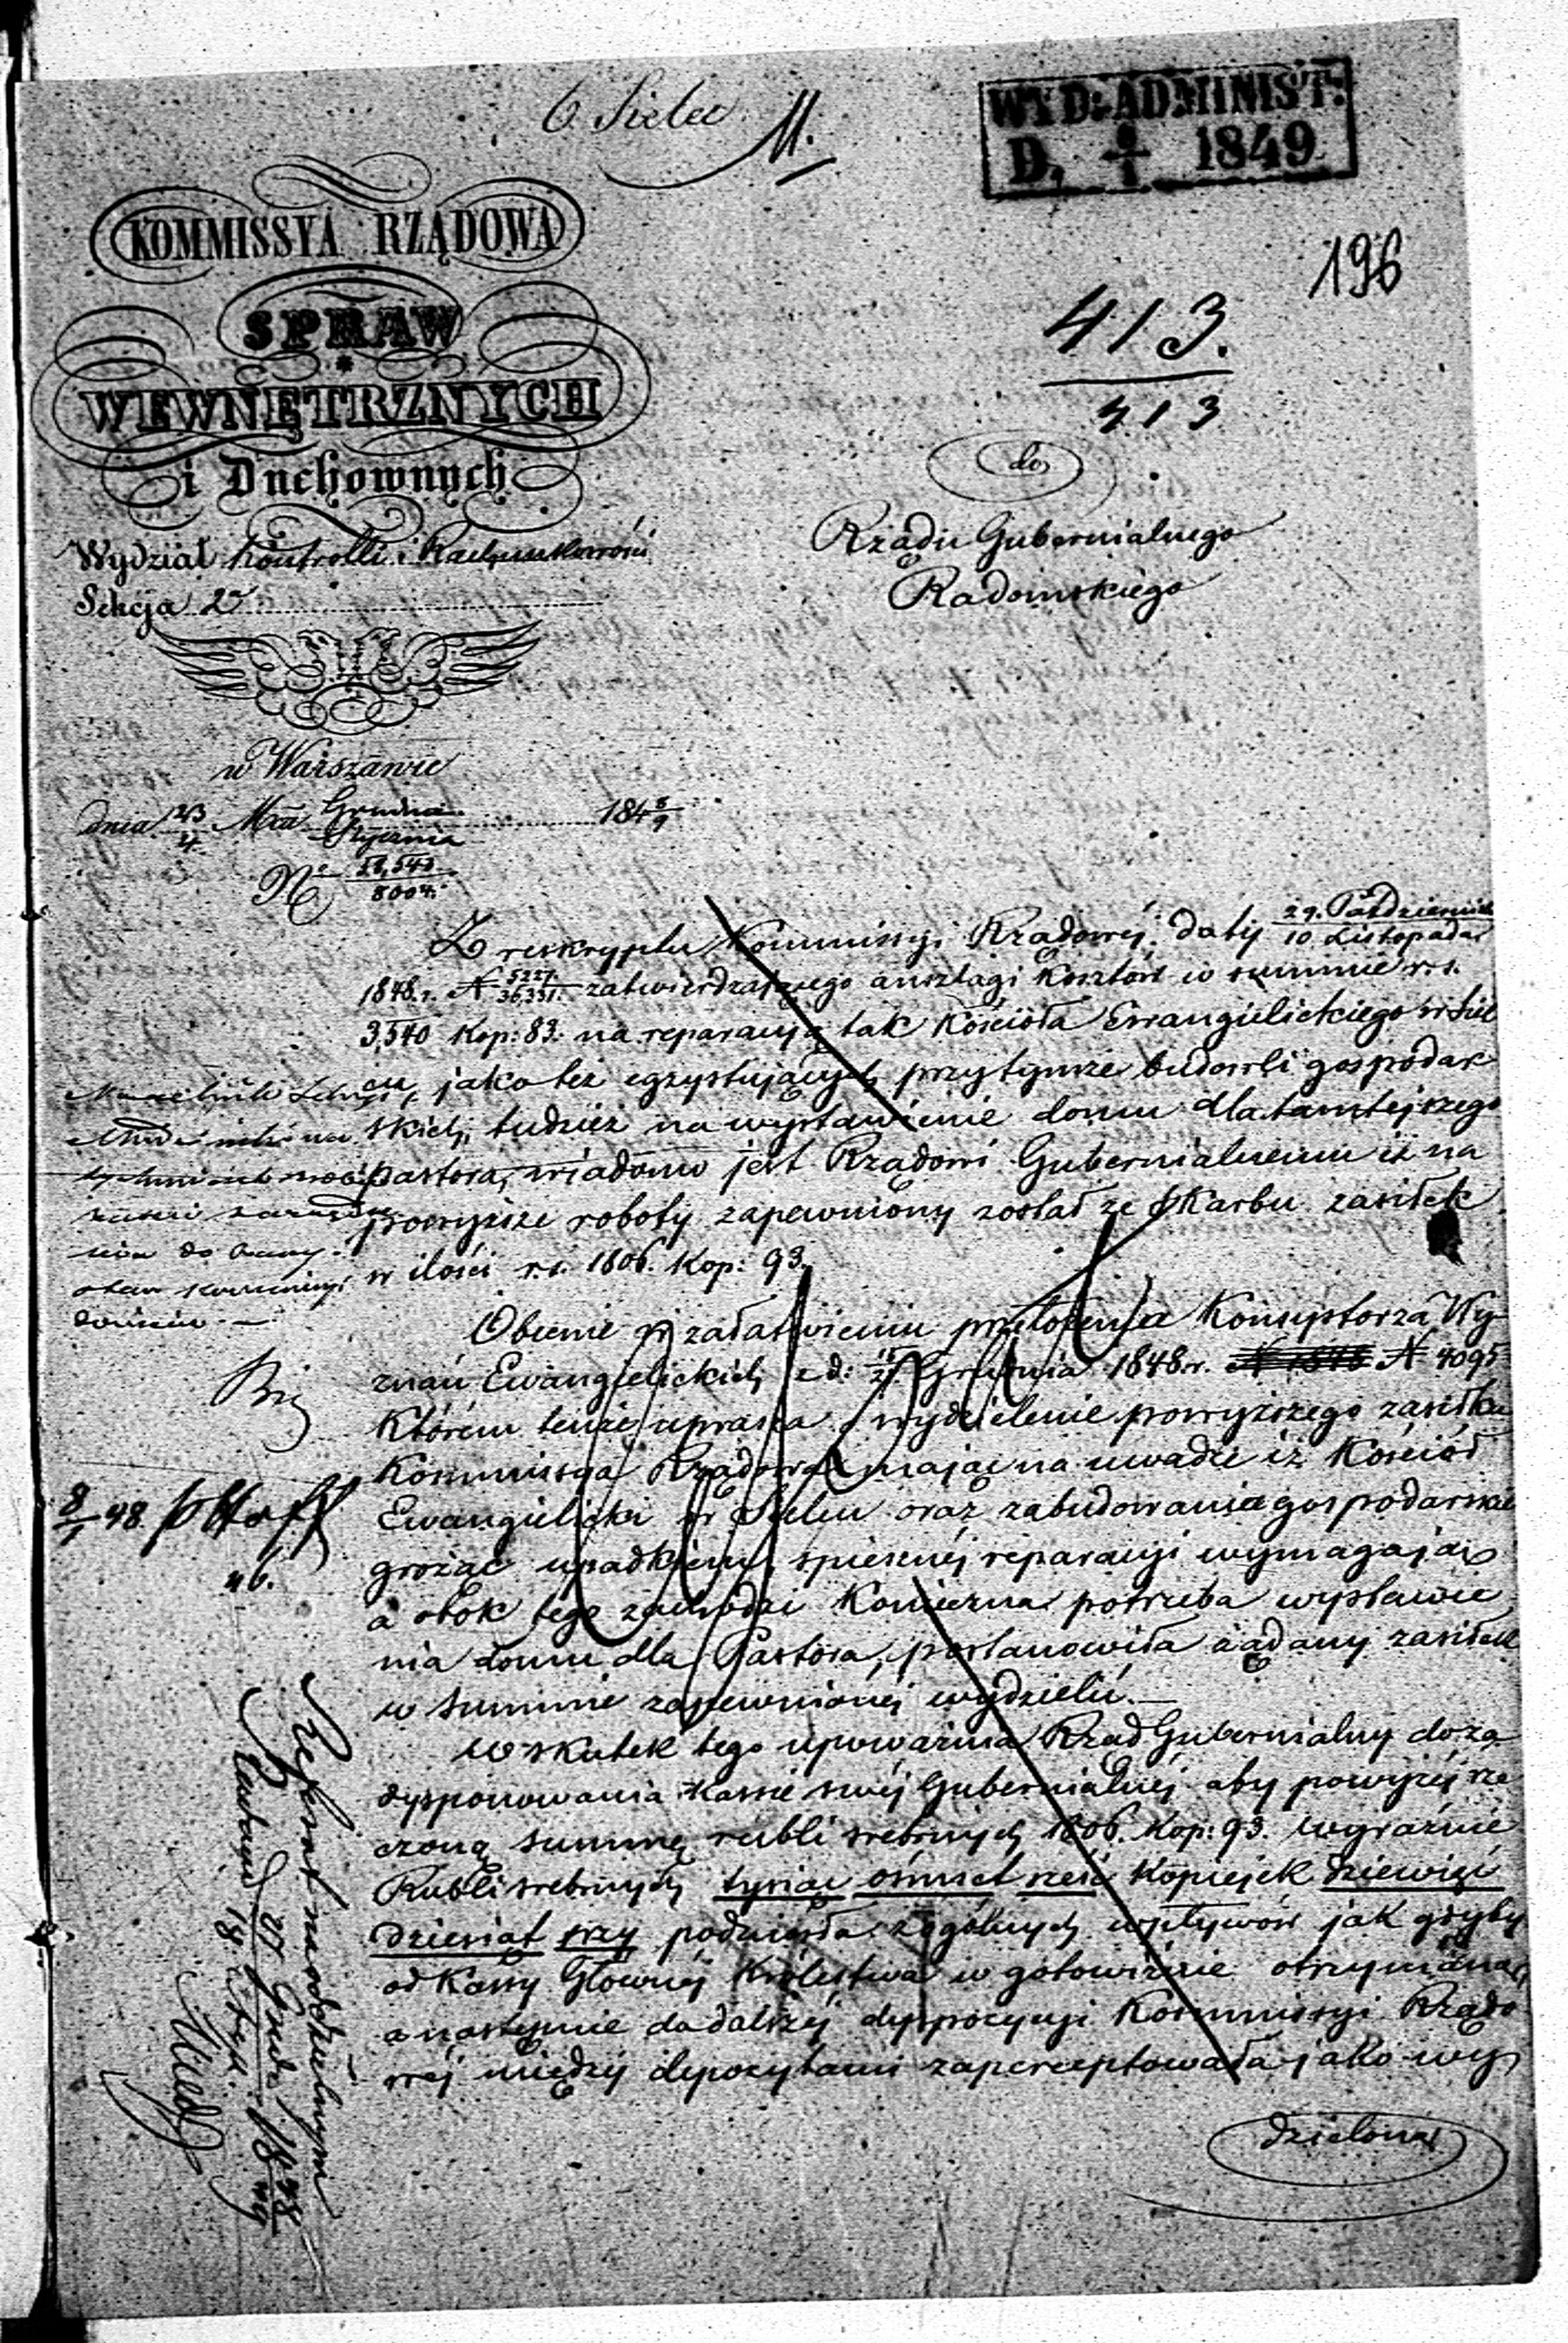 6. Sielec M.
WYD: ADMINIST:
D. 8/1 1849
196
KOMMISSYA RZĄDOWA
SPRAW
WEWNĘTRZNYCH
i Duchownych
Wydział Kontrolli i Rachunkowości
Sekcja 2a
413.
413
do
Rządu Gubernialnego
Radomskiego
w Warszawie
dnia 23/4 Mca Grudnia/Stycznia 1848/9
No 58,543/8004.
Z reskryptu Kommissyi Rządowéj daty 29. Październik/10 Listopada
1848. r. N 5227/36,331. zatwierdzającego anszlagi kosztów w summie r. s.
3,540 kop: 83. na reparacyą tak Kościoła Ewangielickiego w Siel
cu, jakoteż egzystujących przytymże budowli gospodar
skich, tudzież na wystawienie domu dla tamtejszego
pastora, wiadomo jest Rządowi Gubernialnemu iż na
powyższe roboty zapewniony został ze Skarbu zasiłek
w ilości r. s. 1806. kop: 93.
Obecnie w załatwieniu przełożenia Konsystorza Wy-
znań Ewangielickich z d: Grudnia 1848 r. N 4095
którém tenże uprasza o wydzielenie powyższego zasiłku
Kommissya Rządowa mając na uwadze iż Kościół
Ewangielicki w Sielcu oraz zabudowania gospodarskie
grożąc upadkiem, spiesznéj reparacyi wymagają
a obok tego zachodzi konieczna potrzeba wystawie
nia domu dla Pastora, postanowiła żądany zasiłek
w summie zapewnionéj wydzielić.—
W skutek tego upoważnia Rząd Gubernialny do za
dysponowania Kassie swéj Gubernialnéj aby powyżéj rze
czoną summę rubli srebrnych 1806. kop: 93. wyraźnie
Rubli srebrnych tysiąc ośmset sześć kopiejek dziewięć
dziesiąt trzy podniosła z ogólnych wpływów jak gdyby
od Kassy Głównéj Królestwa w gotowiźnie otrzymaną
a następnie do dalszéj dyspozycyi Kommissyi Rządo
wéj między depozytami zaperceptowała jako wy
dzieloną
Naczelnik Sekcyi
8/1 48.
46.
Referat na oddzielnym